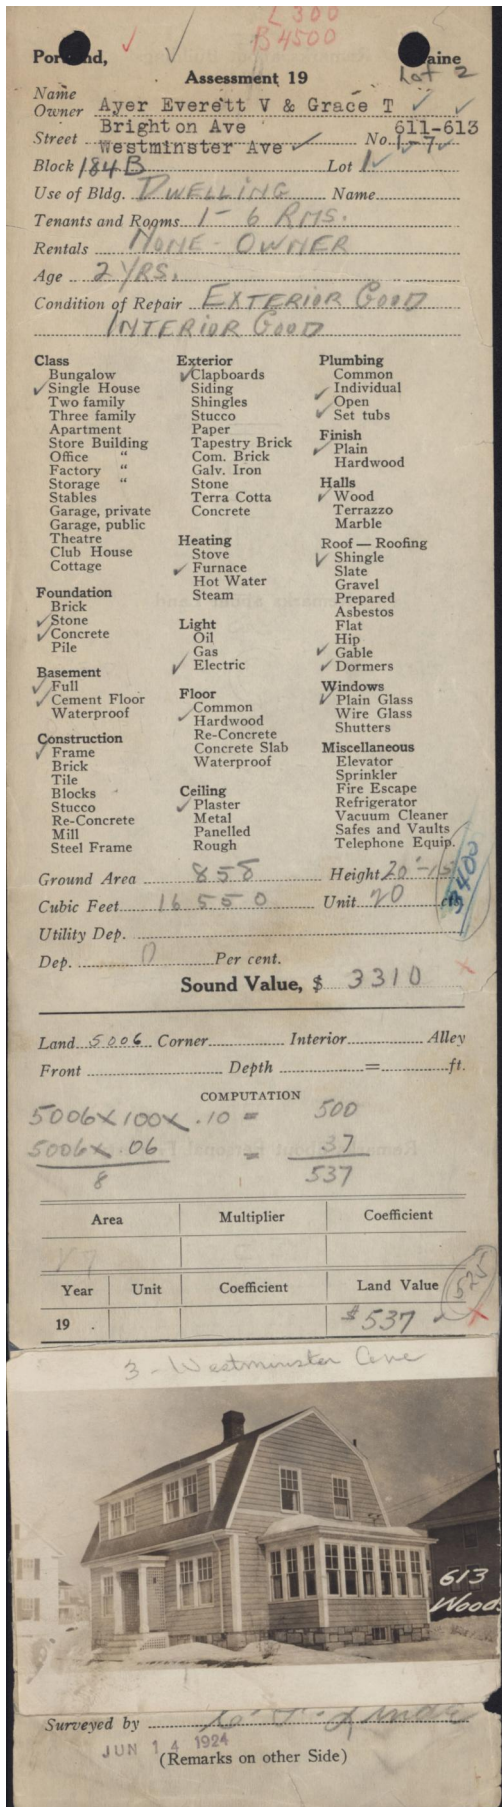 L 300
B 4500
Portland, Maine
Assessment 19
Lot 2
Name
Owner Ayer Everett V & Grace T
Street Brighton Ave No. 611-613
Westminster Ave 1-7
Block 184B Lot 1
Use of Bldg. DWELLING Name
Tenants and Rooms 1-6 RMS.
Rentals NONE - OWNER
Age 2 YRS.
Condition of Repair EXTERIOR GOOD
INTERIOR GOOD
Class
Bungalow
✓ Single House
Two family
Three family
Apartment
Store Building
Office "
Factory "
Storage "
Stables
Garage, private
Garage, public
Theatre
Club House
Cottage
Foundation
Brick
✓ Stone
✓ Concrete
Pile
Basement
✓ Full
✓ Cement Floor
Waterproof
Construction
✓ Frame
Brick
Tile
Blocks
Stucco
Re-Concrete
Mill
Steel Frame
Exterior
✓ Clapboards
Siding
Shingles
Stucco
Paper
Tapestry Brick
Com. Brick
Galv. Iron
Stone
Terra Cotta
Concrete
Heating
Stove
✓ Furnace
Hot Water
Steam
Light
Oil
Gas
✓ Electric
Floor
✓ Common
Hardwood
Re-Concrete
Concrete Slab
Waterproof
Ceiling
✓ Plaster
Metal
Panelled
Rough
Plumbing
Common
✓ Individual
Open
✓ Set tubs
Finish
✓ Plain
Hardwood
Halls
✓ Wood
Terrazzo
Marble
Roof — Roofing
✓ Shingle
Slate
Gravel
Prepared
Asbestos
Flat
Hip
✓ Gable
✓ Dormers
Windows
✓ Plain Glass
Wire Glass
Shutters
Miscellaneous
Elevator
Sprinkler
Fire Escape
Refrigerator
Vacuum Cleaner
Safes and Vaults
Telephone Equip.
Ground Area 858 Height 20'
Cubic Feet 16550 Unit 20 cts
3400
Utility Dep.
Dep. 0 Per cent.
Sound Value, $ 3310
Land 5006 Corner Interior Alley
Front Depth = ft.
COMPUTATION
5006 x 100 x .10 = 500
5006 x .06 = 37
8 537
Area Multiplier Coefficient
Year Unit Coefficient Land Value
525
19 . $537
3 - Westminster Ave
613
Wood
Surveyed by
JUN 14 1924
(Remarks on other Side)